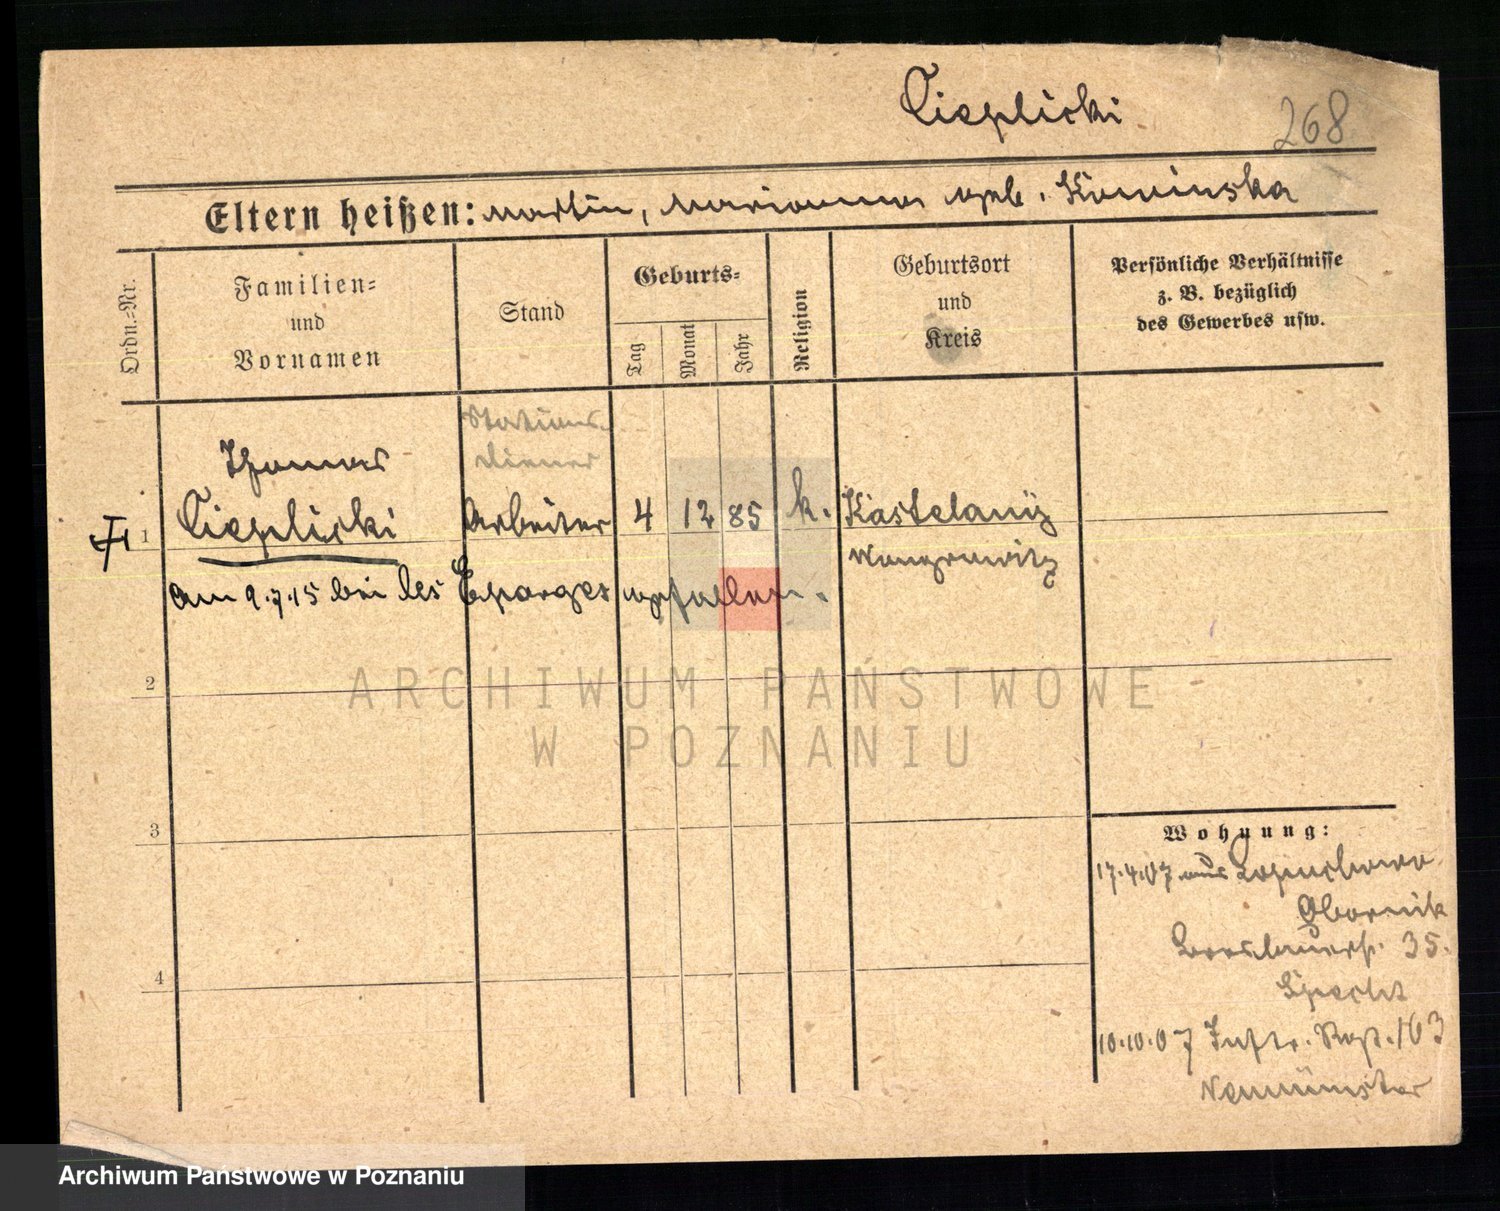 Cieplicki
268
Eltern heißen: Martin, Marianna geb. Kaminska
Ordn.-Nr.
Familien-
und
Vornamen
Stand
Geburts-
Tag
Monat
Jahr
Religion
Geburtsort
und
Kreis
Persönliche Verhältnisse
z. B. bezüglich
des Gewerbes usw.
Stations-
diener
Thomas
1
Cieplicki
Arbeiter
4
12
85
k.
Kastelaniz
Wongrowitz
am 9.7.15 bei les Eparges gefallen.
2
ARCHIWUM PAŃSTWOWE
W POZNANIU
3
4
Wohnung:
17.4.07 aus
Obornik
Breslauerstr. 35.
Specht
10.10.07 Inftr. Regt. 163
Neumünster
Archiwum Państwowe w Poznaniu